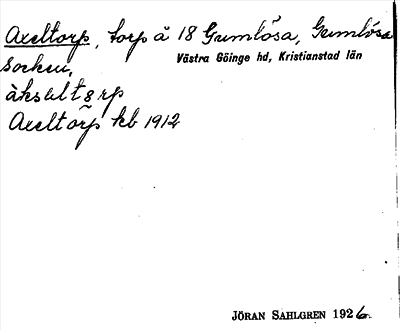 Axeltorp, torp å 18 Gumlösa, Gumlösa
Västra Göinge hd, Kristianstad län
Socken,
àksəltǫrp
Axeltorp kb 1912
JÖRAN SAHLGREN 1926.